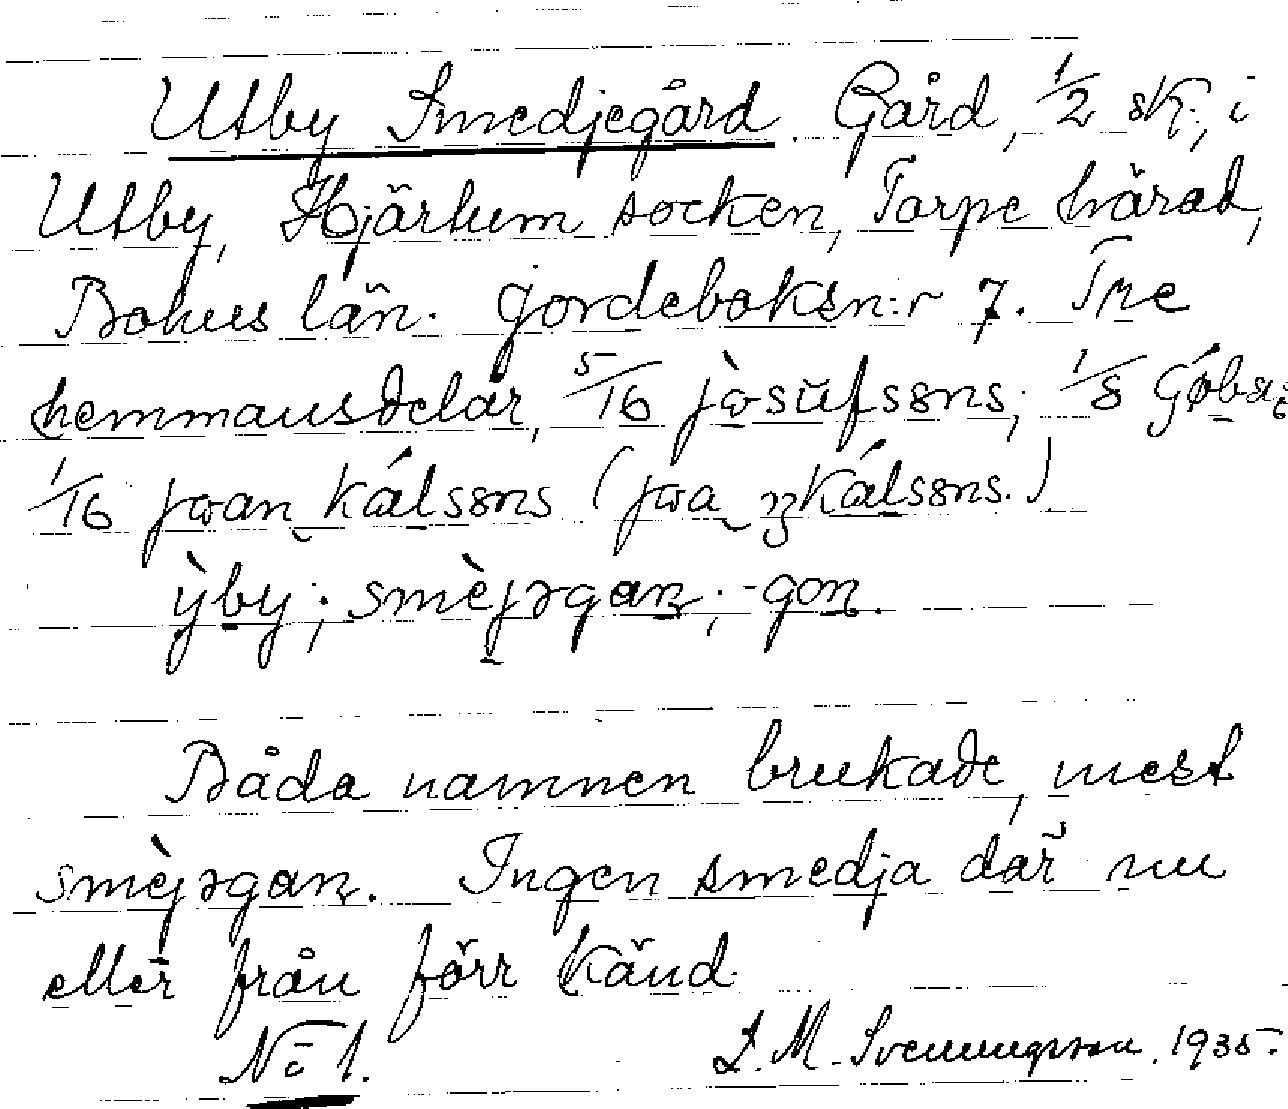 Utby Smedjegård. Gård, 1/2 sk., i
Utby, Hjärtum socken, Torpe härad,
Bohus län. Jordeboksn:r 7. Tre
hemmansdelar, 5/16 jòsŭfsɘns, 1/8
1/16 joan kálsɘns
ỳby; smèjəgaɳ; -goɳ.
Båda namnen brukade, mest
smèjəgaɳ. Ingen smedja där nu
eller från förr känd.
N:o 1. S. M. Svenungsson. 1935.